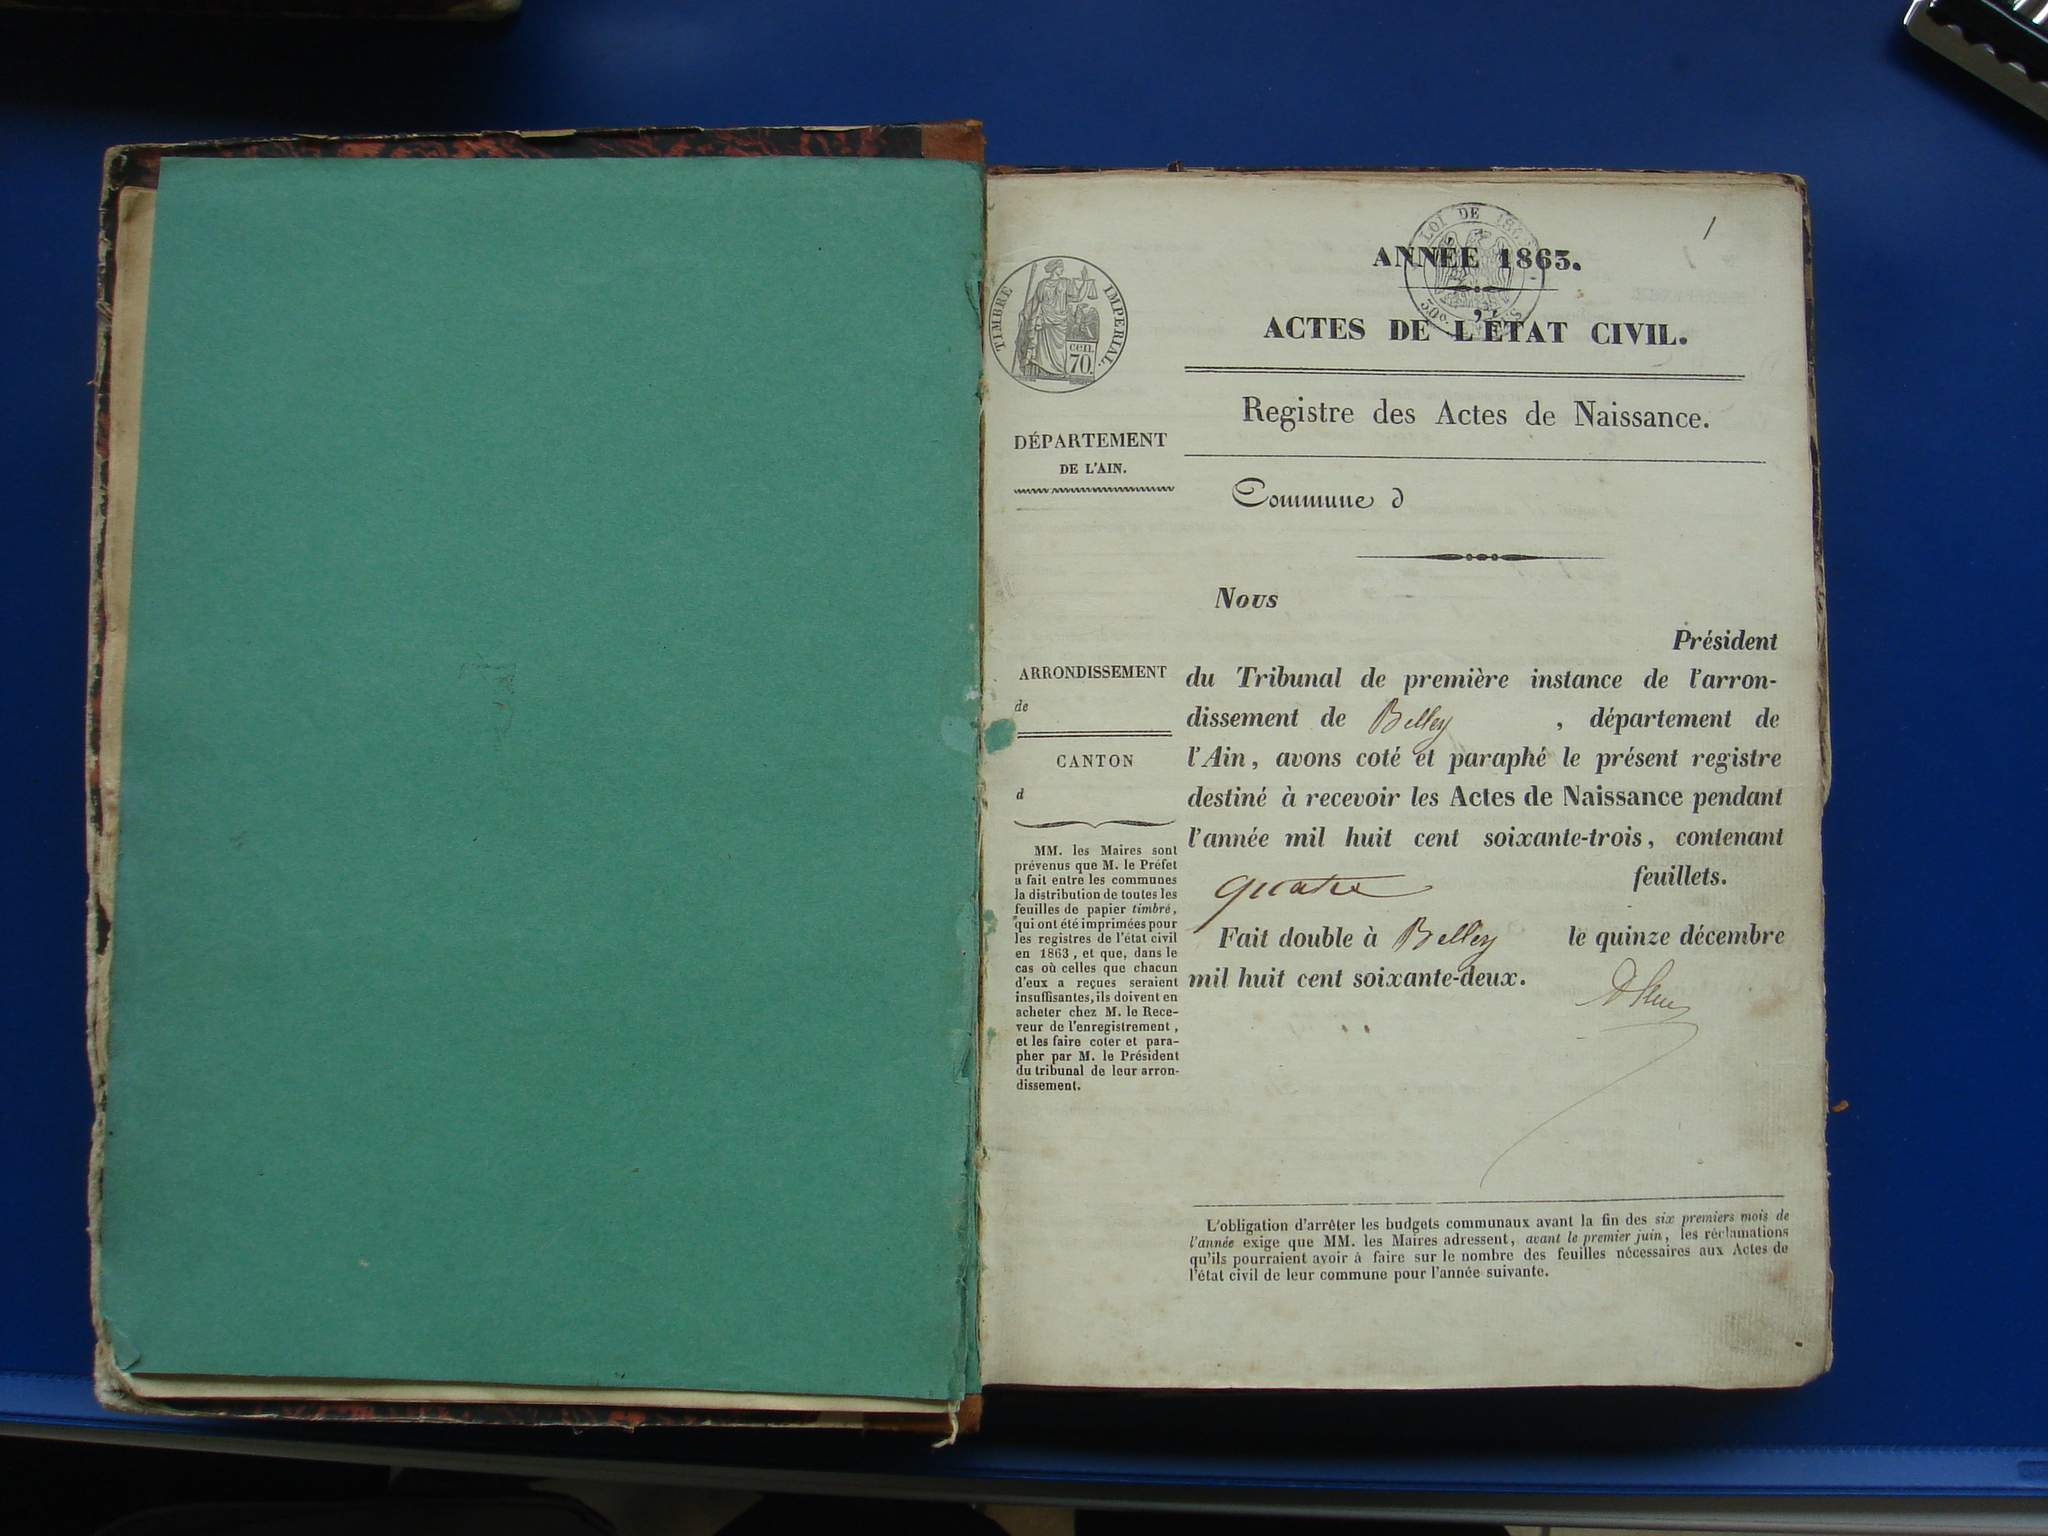 1
LOI DE
ANNÉE 1863.
TIMBRE IMPERIAL.
cen.
70.
ACTES DE L'ÉTAT CIVIL.
Registre des Actes de Naissance.
DÉPARTEMENT
DE L'AIN.
Commune d
Nous
Président
ARRONDISSEMENT
de
CANTON
d
du Tribunal de première instance de l'arron-
dissement de Belley , département de
l'Ain, avons coté et paraphé le présent registre
destiné à recevoir les Actes de Naissance pendant
l'année mil huit cent soixante-trois, contenant
quatre feuillets.
Fait double à Belley le quinze décembre
mil huit cent soixante-deux.
MM. les Maires sont
prévenus que M. le Préfet
a fait entre les communes
la distribution de toutes les
feuilles de papier timbré,
qui ont été imprimées pour
les registres de l'état civil
en 1863, et que, dans le
cas où celles que chacun
d'eux a reçues seraient
insuffisantes, ils doivent en
acheter chez M. le Rece-
veur de l'enregistrement,
et les faire coter et para-
pher par M. le Président
du tribunal de leur arron-
dissement.
L'obligation d'arrêter les budgets communaux avant la fin des six premiers mois de
l'année exige que MM. les Maires adressent, avant le premier juin, les réclamations
qu'ils pourraient avoir à faire sur le nombre des feuilles nécessaires aux Actes de
l'état civil de leur commune pour l'année suivante.